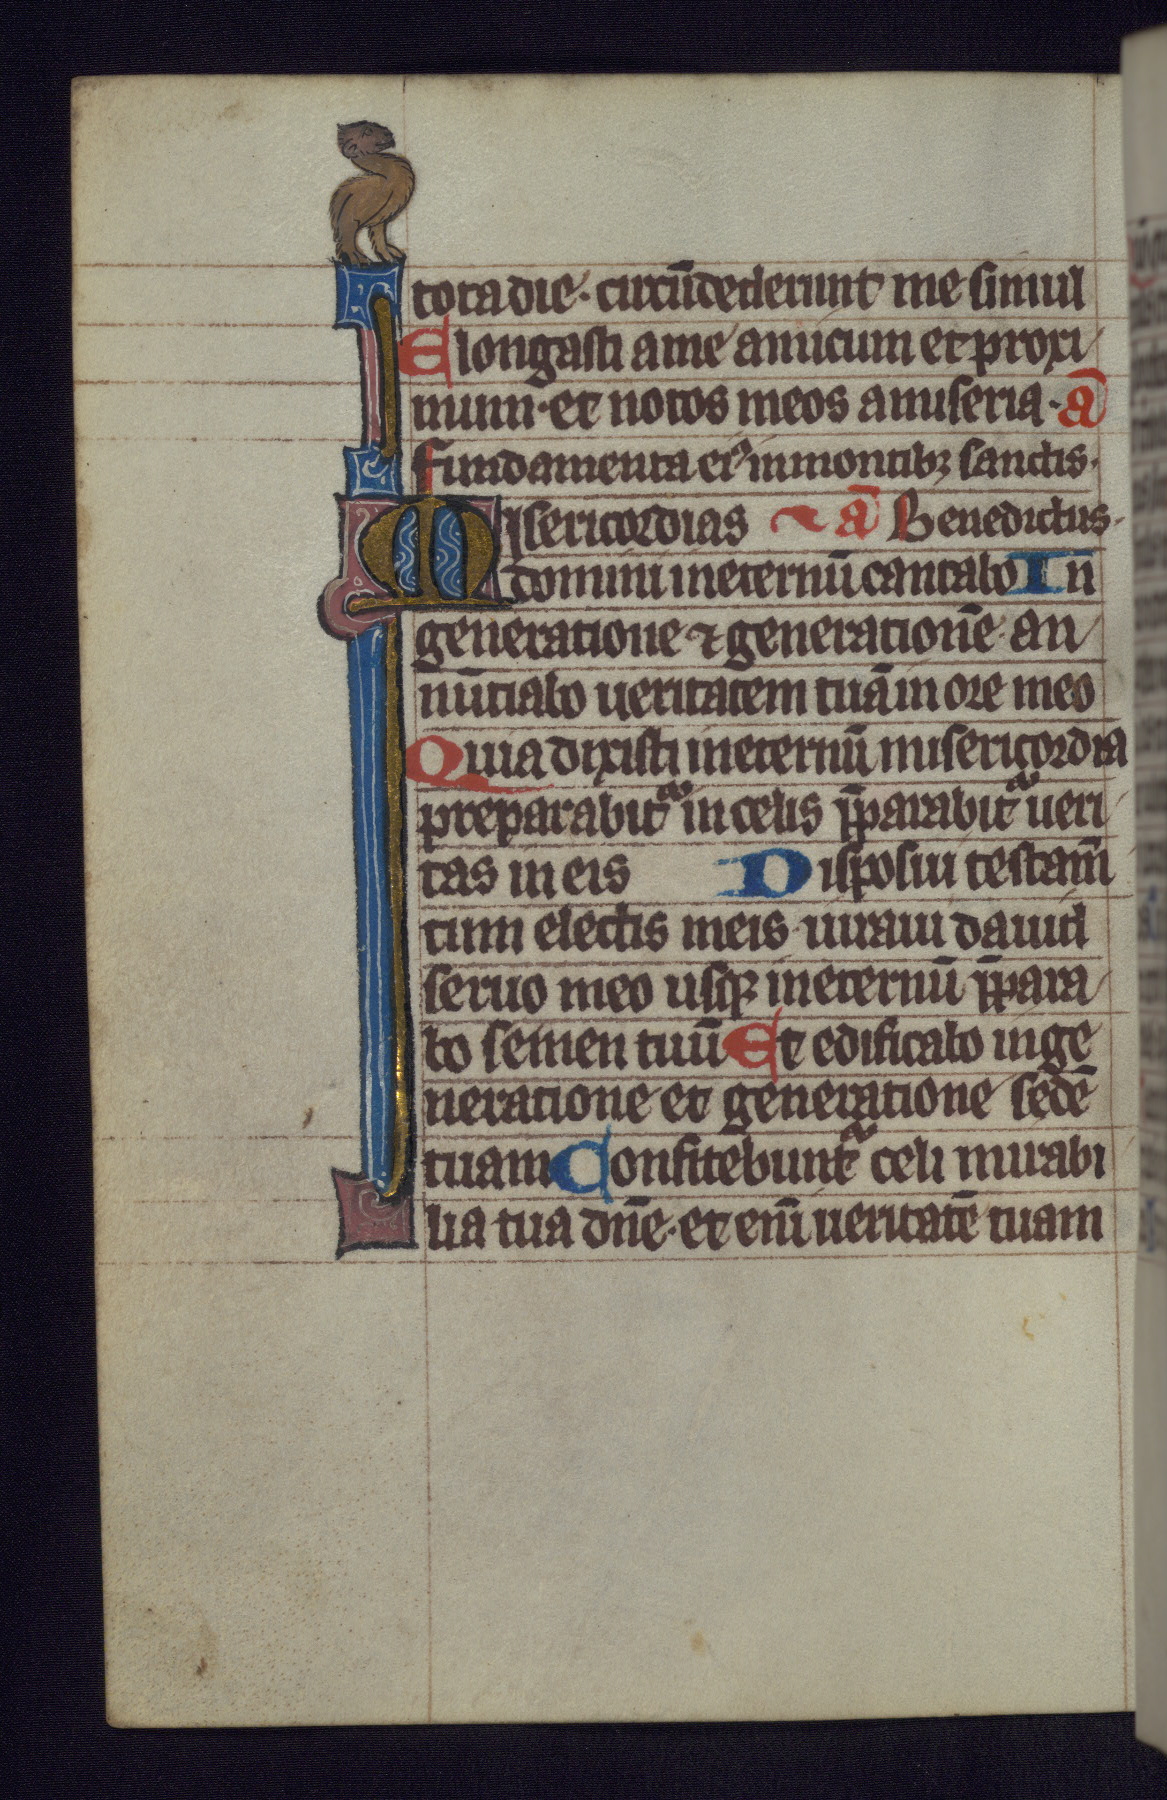 tota die · circūdederunt me simul
Elongasti a me amicum et proxi
mum · et notos meos a miseria · ā
fundamenta eiꝰ in montibꝫ sanctis ·
Misericordias ā Benedictus ·
domini in eternū cantabo In
generatione ⁊ generationē · an
nūtiabo ueritatem tuā in ore meo
Quia dixisti in eternū misericordia
preparabitᷓ in celis p̄parabitᷓ ueri
tas in eis Disposui testam̄
tum electis meis · iuraui dauid
seruo meo usqꝫ in eternū p̄para
bo semen tuū Et edificabo in ge
neratione et generatione sedē
tuam Confitebuntᷓ celi mirabi
lia tua dn̄e · et eni̅ ueritatē tuam